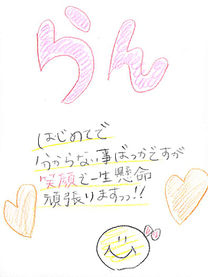 らん
はじめてで
分からない事ばっかですが
笑顔で一生懸命
頑張りますっっ!!